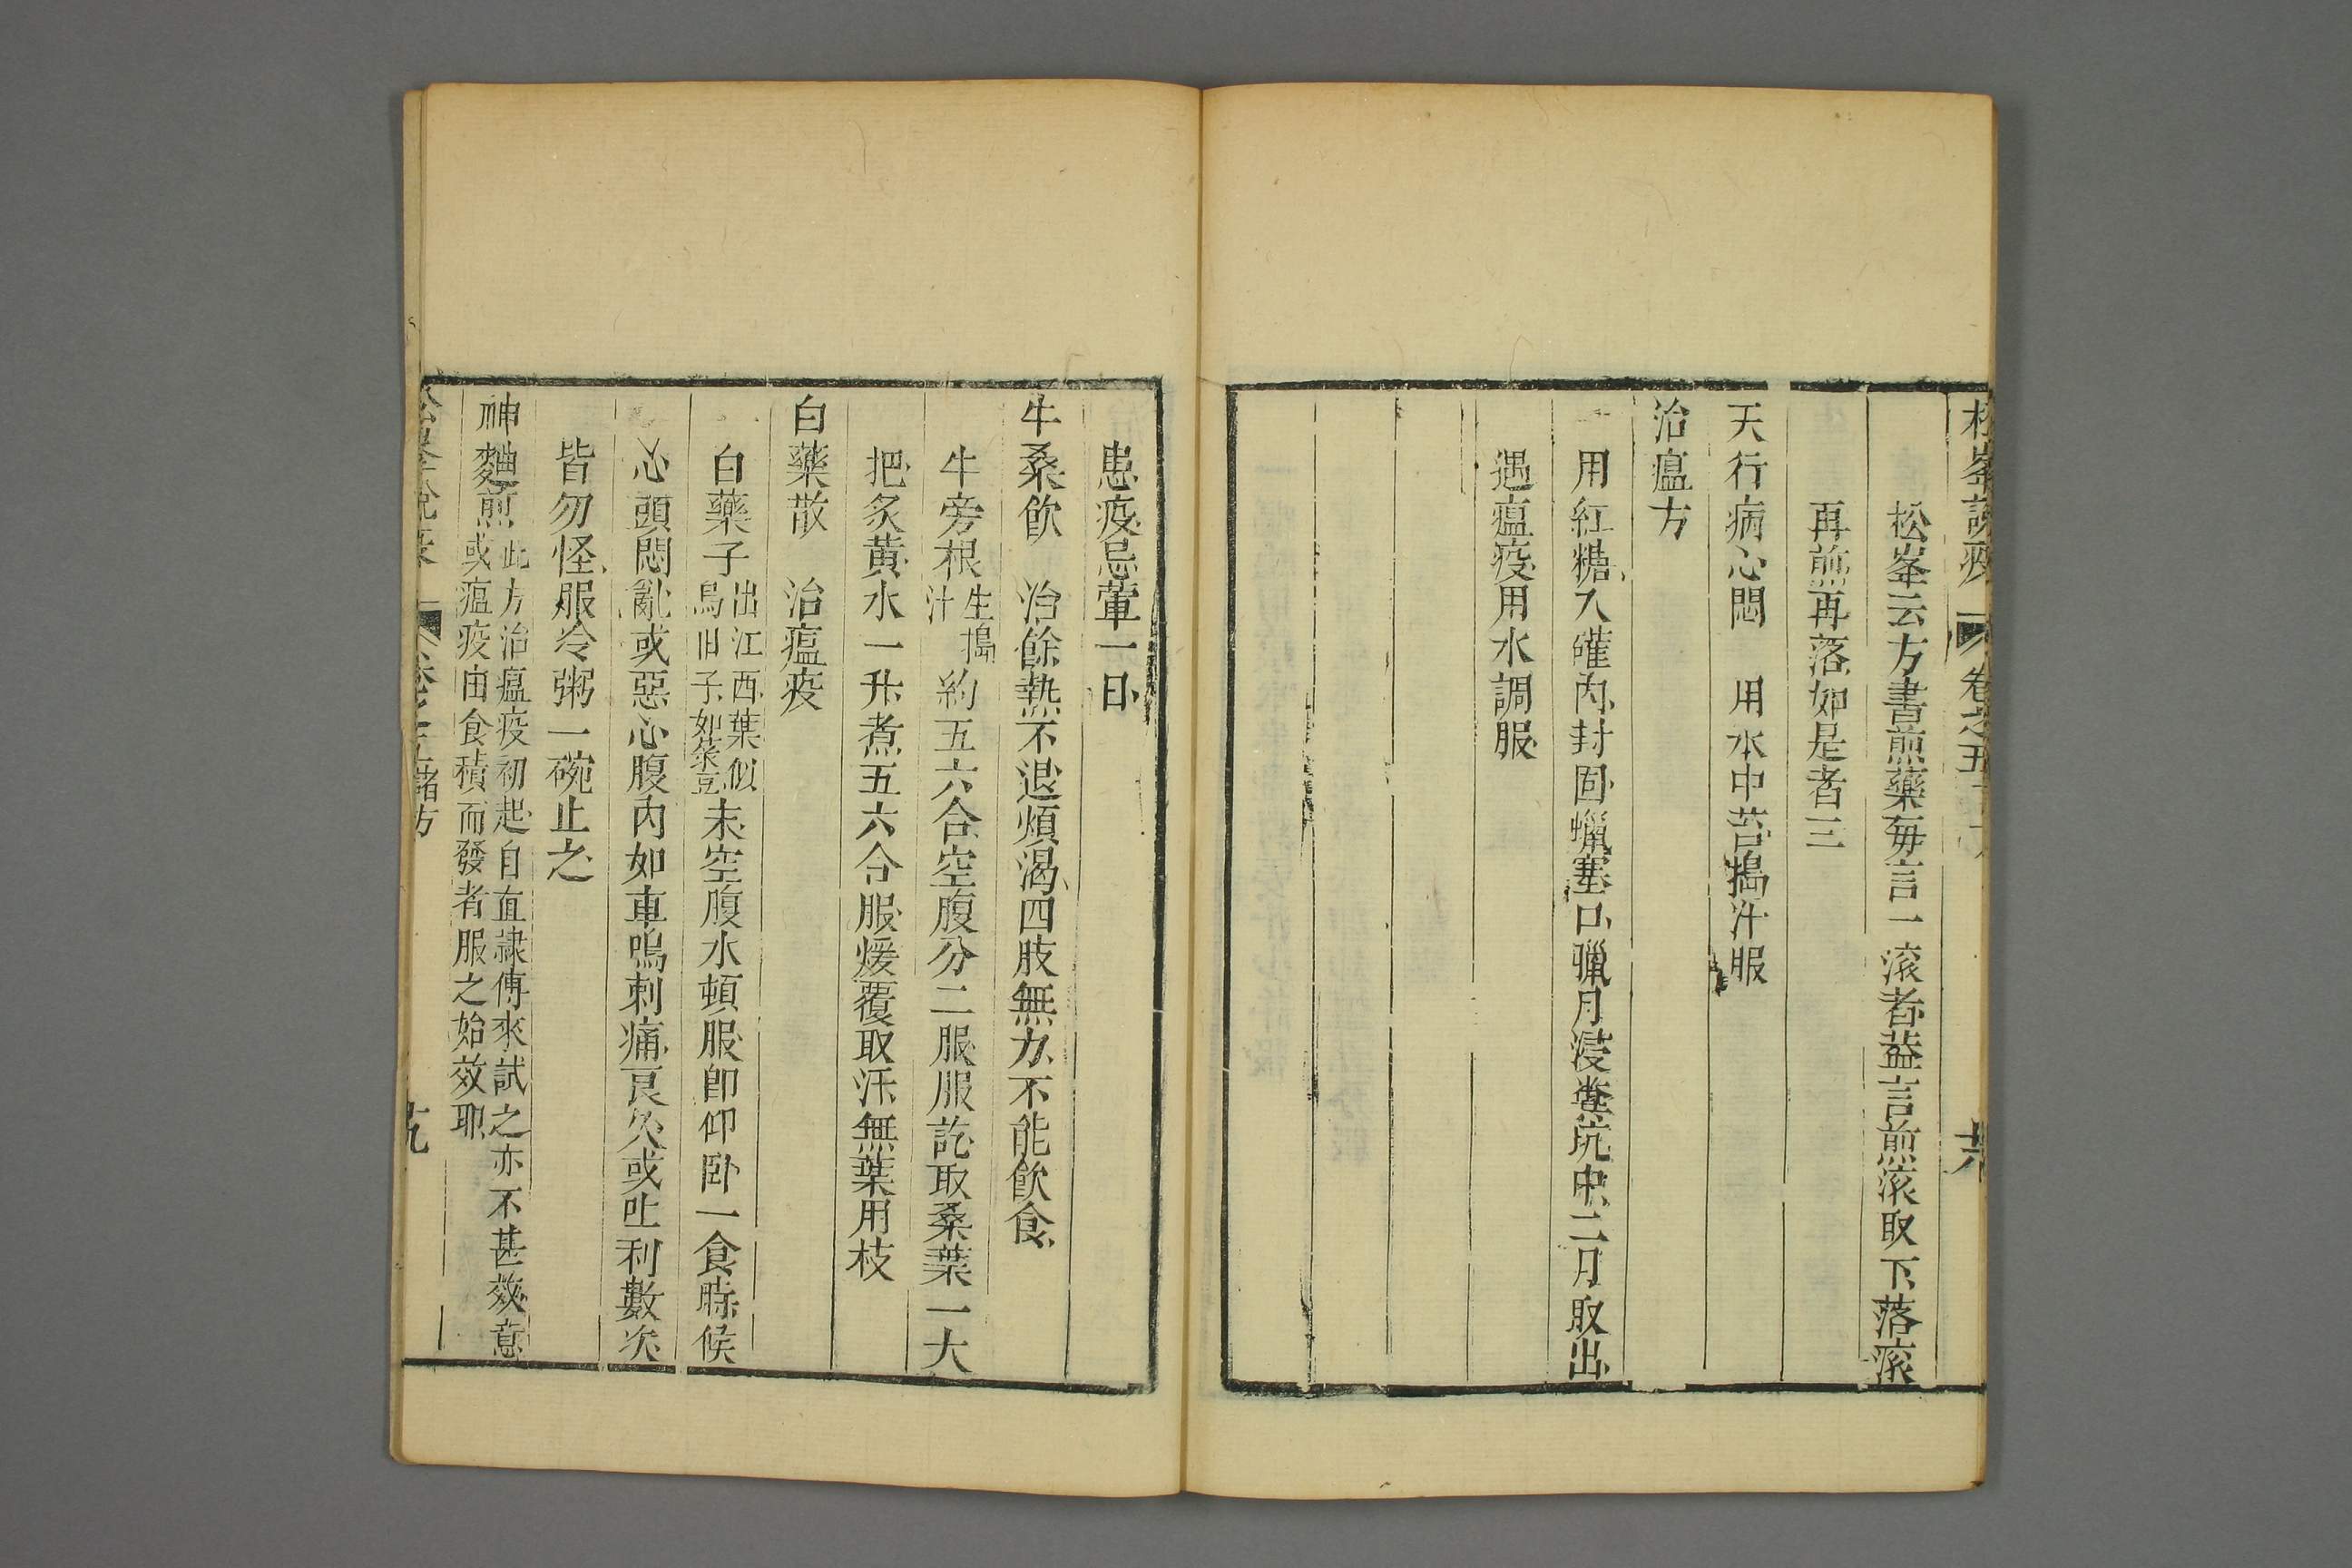 松峯說疫 卷之五
松峯云方書煎藥每言一滚者葢言煎滚取下落滚
再煎再落如是者三
天行病心悶 用水中苔搗汁服
治瘟方
用紅糖入礶內封固蠟塞口臘月浸糞坑中二月取出
遇瘟疫用水調服
患疫忌葷一日
牛桑飲 治餘熱不退煩渴四肢無力不能飲食
牛旁根生搗汁約五六合空腹分二服服訖取桑葉一大
把炙黄水一升煮五六合服煖覆取汗無葉用枝
白藥散 治瘟疫
白藥子出江西葉似烏旧子如菉豆末空腹水頓服卽仰卧一食時候
心頭悶亂或惡心腹內如車鳴刺痛良久或吐利數次
皆勿怪服冷粥一碗止之
神麯煎此方治瘟疫初起自直隷傳來試之亦不甚效意
或瘟疫由食積而發者服之始效耶
諸方